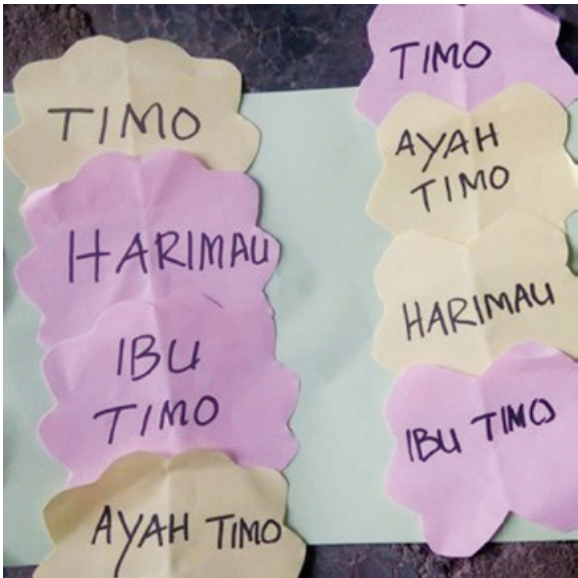 TIMO
HARIMAU
IBU
TIMO
AYAH TIMO
TIMO
AYAH
TIMO
HARIMAU
IBU TIMO